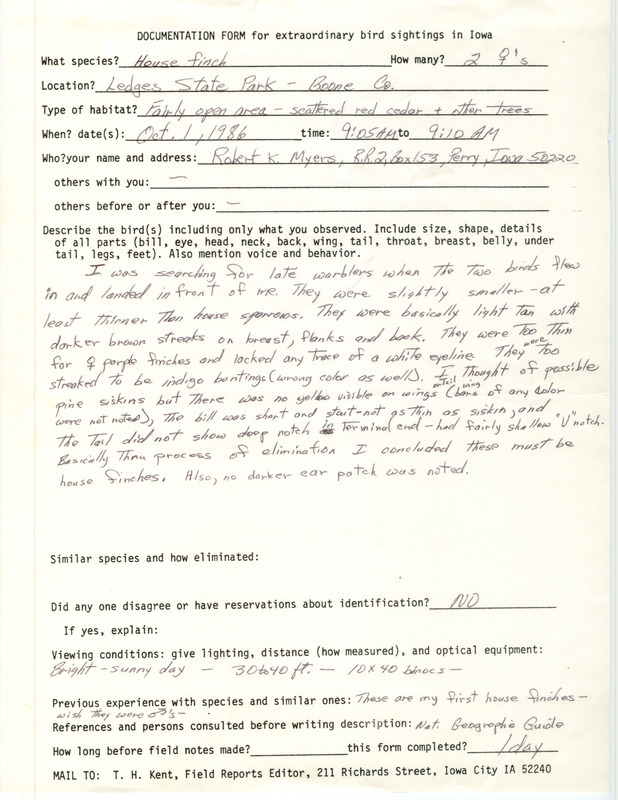 DOCUMENTATION FORM for extraordinary bird sightings in Iowa
What species? House finch How many? 2 ♀'s
Location? Ledges State Park - Boone Co.
Type of habitat? Fairly open area - scattered red cedar + other trees
When? date(s): Oct. 1, 1986 time: 9:05 AM to 9:10 AM
Who? your name and address: Robert K. Myers, R.R.2, Box 153, Perry, Iowa 50220
others with you: —
others before or after you: —
Describe the bird(s) including only what you observed. Include size, shape, details
of all parts (bill, eye, head, neck, back, wing, tail, throat, breast, belly, under
tail, legs, feet). Also mention voice and behavior.
I was searching for late warblers when the two birds flew
in and landed in front of me. They were slightly smaller - at
least thinner than house sparrows. They were basically light tan with
darker brown streaks on breast, flanks and back. They were too thin
for ♀ purple finches and lacked any trace of a white eyeline. They were too
streaked to be indigo buntings (wrong color as well). I thought of possible
pine siskins but there was no yellow visible on wings or tail (wing bars of any color
were not noted), the bill was short and stout - not as thin as siskin, and
the tail did not show deep notch in terminal end - had fairly shallow "V" notch.
Basically thru process of elimination I concluded these must be
house finches. Also, no darker ear patch was noted.
Similar species and how eliminated:
Did any one disagree or have reservations about identification? NO
If yes, explain:
Viewing conditions: give lighting, distance (how measured), and optical equipment:
Bright - sunny day — 30 to 40 ft. — 10 x 40 binocs —
Previous experience with species and similar ones: These are my first house finches -
wish they were ♂'s -
References and persons consulted before writing description: Nat. Geographic Guide
How long before field notes made? this form completed? 1 day
MAIL TO: T. H. Kent, Field Reports Editor, 211 Richards Street, Iowa City IA 52240